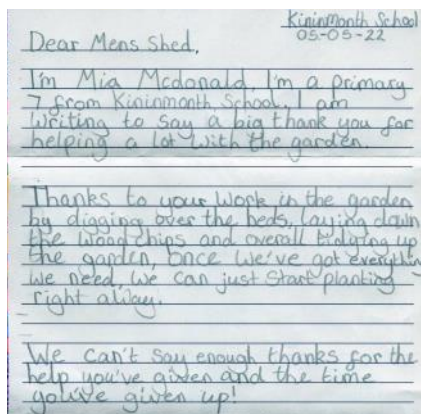 Kininmonth School
05-05-22
Dear Mens Shed,
I'm Mia Mcdonald, I'm a primary
7 from Kininmonth School, I am
writing to say a big thank you for
helping a lot with the garden.
Thanks to your work in the garden
by digging over the beds, laying down
the wood chips and overall tidying up
the garden, once we've got everything
we need, we can just start planting
right away.
We can't say enough thanks for the
help you've given and the time
you've given up!